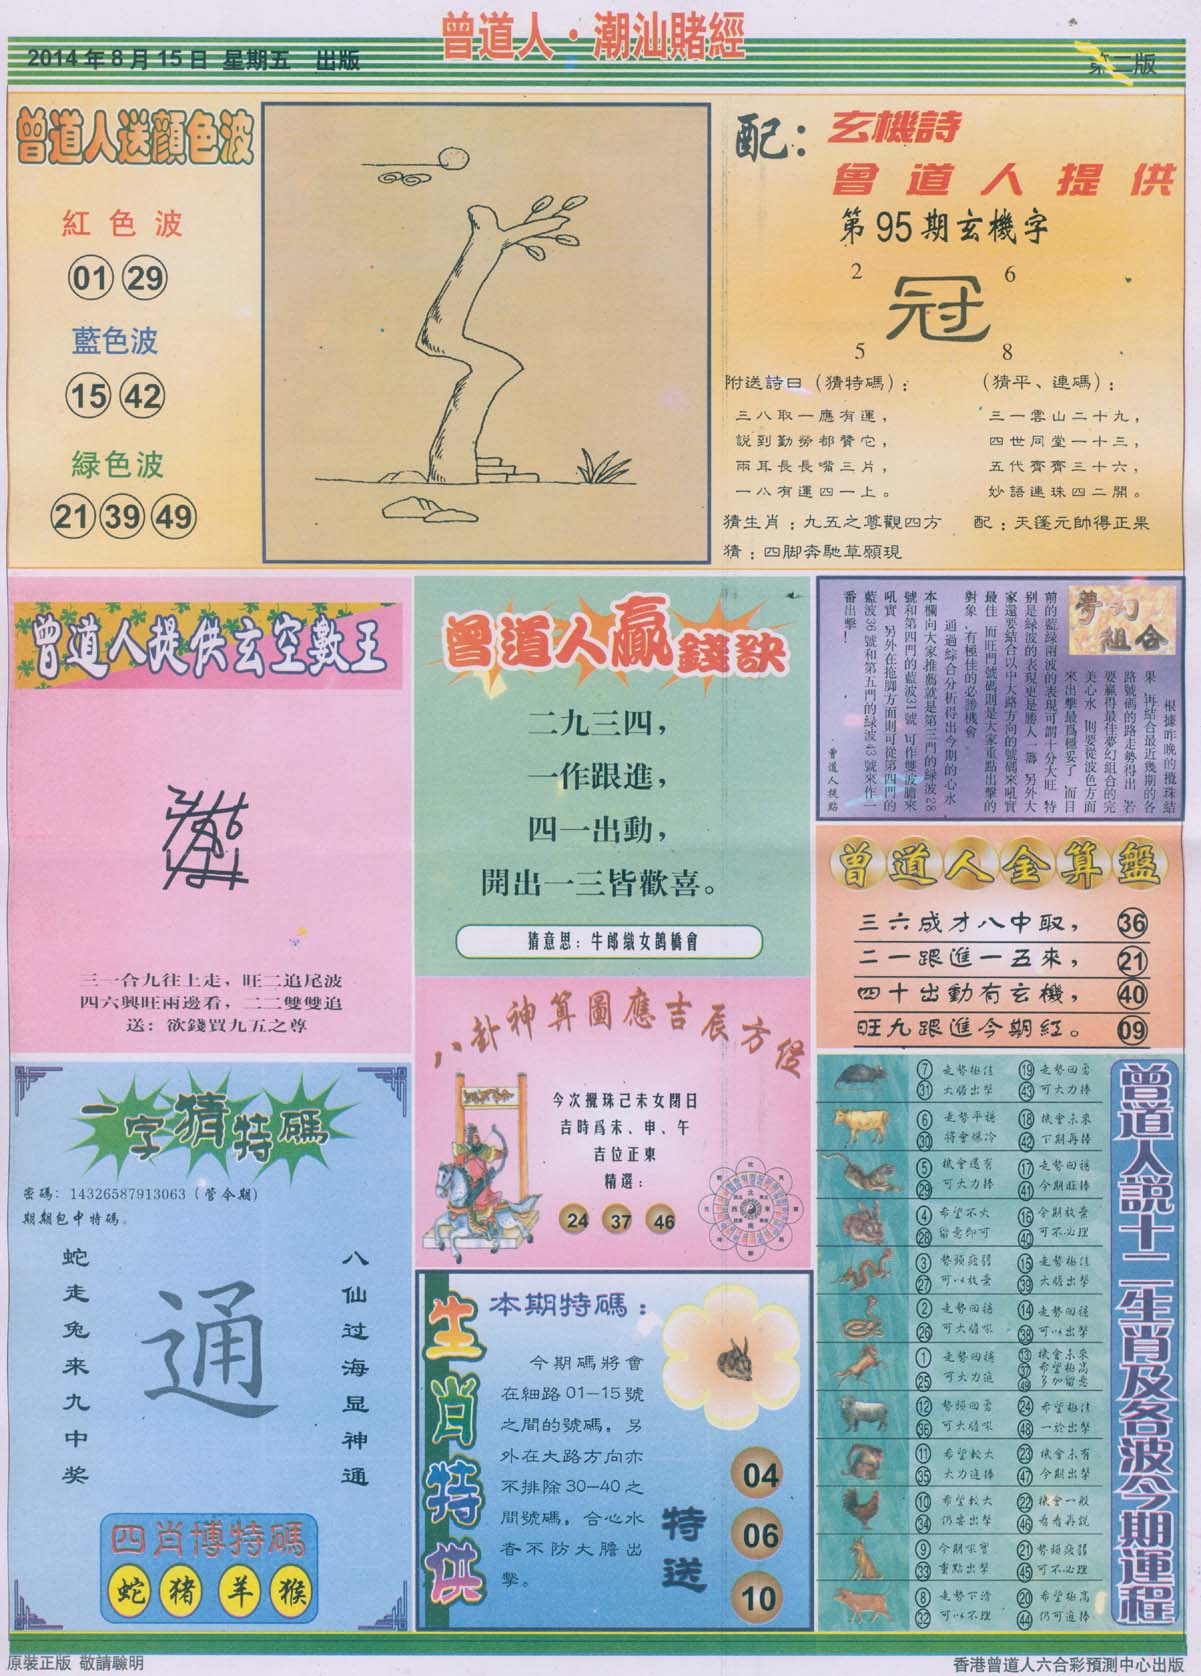 曾道人·潮汕賭經
2014年8月15日 星期五 出版
第二版
曾道人送顔色波
紅色波
01 29
藍色波
15 42
緑色波
21 39 49
配：
玄機詩
曾道人提供
第95期玄機字
2 6
冠
5 8
附送詩曰（猜特碼）：
三八取一應有運，
説到勤勞都贊它，
兩耳長長嘴三片，
一八有運四一上。
（猜平、連碼）：
三一雲山二十九，
四世同堂一十三，
五代齊齊三十六，
妙語連珠四二開。
猜生肖：九五之尊觀四方
配：天蓬元帥得正果
猜：四脚奔馳草願現
曾道人提供玄空數王
三一合九往上走，旺二追尾波
四六興旺兩邊看，二二雙雙追
送：欲錢買九五之尊
曾道人贏錢訣
二九三四，
一作跟進，
四一出動，
開出一三皆歡喜。
猜意思：牛郎織女鵲橋會
夢幻組合
根據昨晚的攪珠結
果 再結合最近幾期的各
路號碼的路走勢得出 若
要贏得最佳夢幻組合的完
美心水 則要從波色方面
來出擊最爲穩妥了 而目
前的藍緑兩波的表現可謂十分大旺 特
别是緑波的表現更是勝人一籌 另外大
家還要結合以中大路方向的號碼來吼實
最佳 而旺門號碼則是大家重點出擊的
對象 有極佳的必勝機會
通過綜合分析得出今期的心水
本欄向大家推薦就是第三門的緑波28
號和第四門的藍波31號 可作雙波膽來
吼實 另外在拖脚方面則可從第四門的
藍波36號和第五門的緑波43號來作一
番出擊！
曾道人提點
曾道人金算盤
三六成才八中取， 36
二一跟進一五來， 21
四十出動有玄機， 40
旺九跟進今期紅。 09
一字猜特碼
密碼：14326587913063（管令期）
期期包中特碼。
蛇走兔来九中奖
通
八仙过海显神通
四肖博特碼
蛇 猪 羊 猴
八卦神算圖應吉辰方位
今次攪珠己未女閉日
吉時爲未、申、午
吉位正東
精選：
24 37 46
生肖特供
本期特碼：
今期碼將會
在細路01—15號
之間的號碼，另
外在大路方向亦
不排除30—40之
間號碼，合心水
者不防大膽出
擊。
特送
04
06
10
曾道人説十二生肖及各波今期運程
7 走勢極佳 19 走勢回勇
31 大膽出擊 43 可大力捧
6 走勢平穩 18 機會未來
30 將會爆冷 42 下期再捧
5 機會還有 17 走勢回穩
29 可大力捧 41 今期旺捧
4 希望不大 16 今期放棄
28 留意即可 40 可不必理
3 勢頭疲弱 15 走勢極佳
27 可以放棄 39 大膽出擊
2 走勢回穩 14 走勢回穩
26 可大膽吼 38 可以出擊
1 走勢回穩 13 機會未來
25 可大力追 37 希望極高
49 多加留意
12 勢頭回勇 24 希望極佳
36 可大膽吼 48 一於出擊
11 希望較大 23 機會未有
35 大力追捧 47 今期出擊
10 希望較大 22 機會一般
34 仍要出擊 46 看看再説
9 今期吼實 21 勢頭疲弱
33 重點出擊 45 可不必理
8 走勢下滑 20 希望極高
32 可以不理 44 仍可追捧
原裝正版 敬請驗明
香港曾道人六合彩預測中心出版